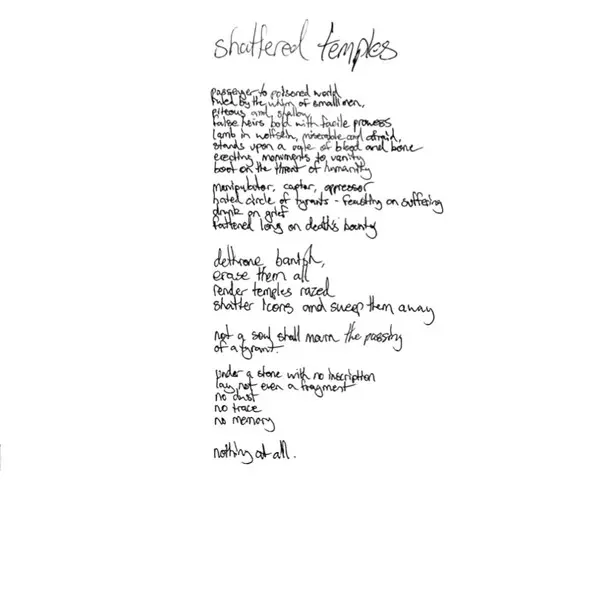 shattered temples
passenger to poisoned world
ruled by the whim of small men,
piteous and shallow
false heirs bold with facile prowess
lamb in wolfskin, miserable and afraid,
stands upon a of blood and bone
erecting monuments to vanity
boot on the throat of humanity
manipulator, captor, oppressor
hated circle of tyrants - feasting on suffering
drunk on grief
fattened long on death's bounty
dethrone banish,
erase them all
render temples razed
shatter icons and sweep them away
not a soul shall mourn the passing
of a tyrant.
under a stone with no inscription
lay not even a fragment
no dust
no trace
no memory
nothing at all.